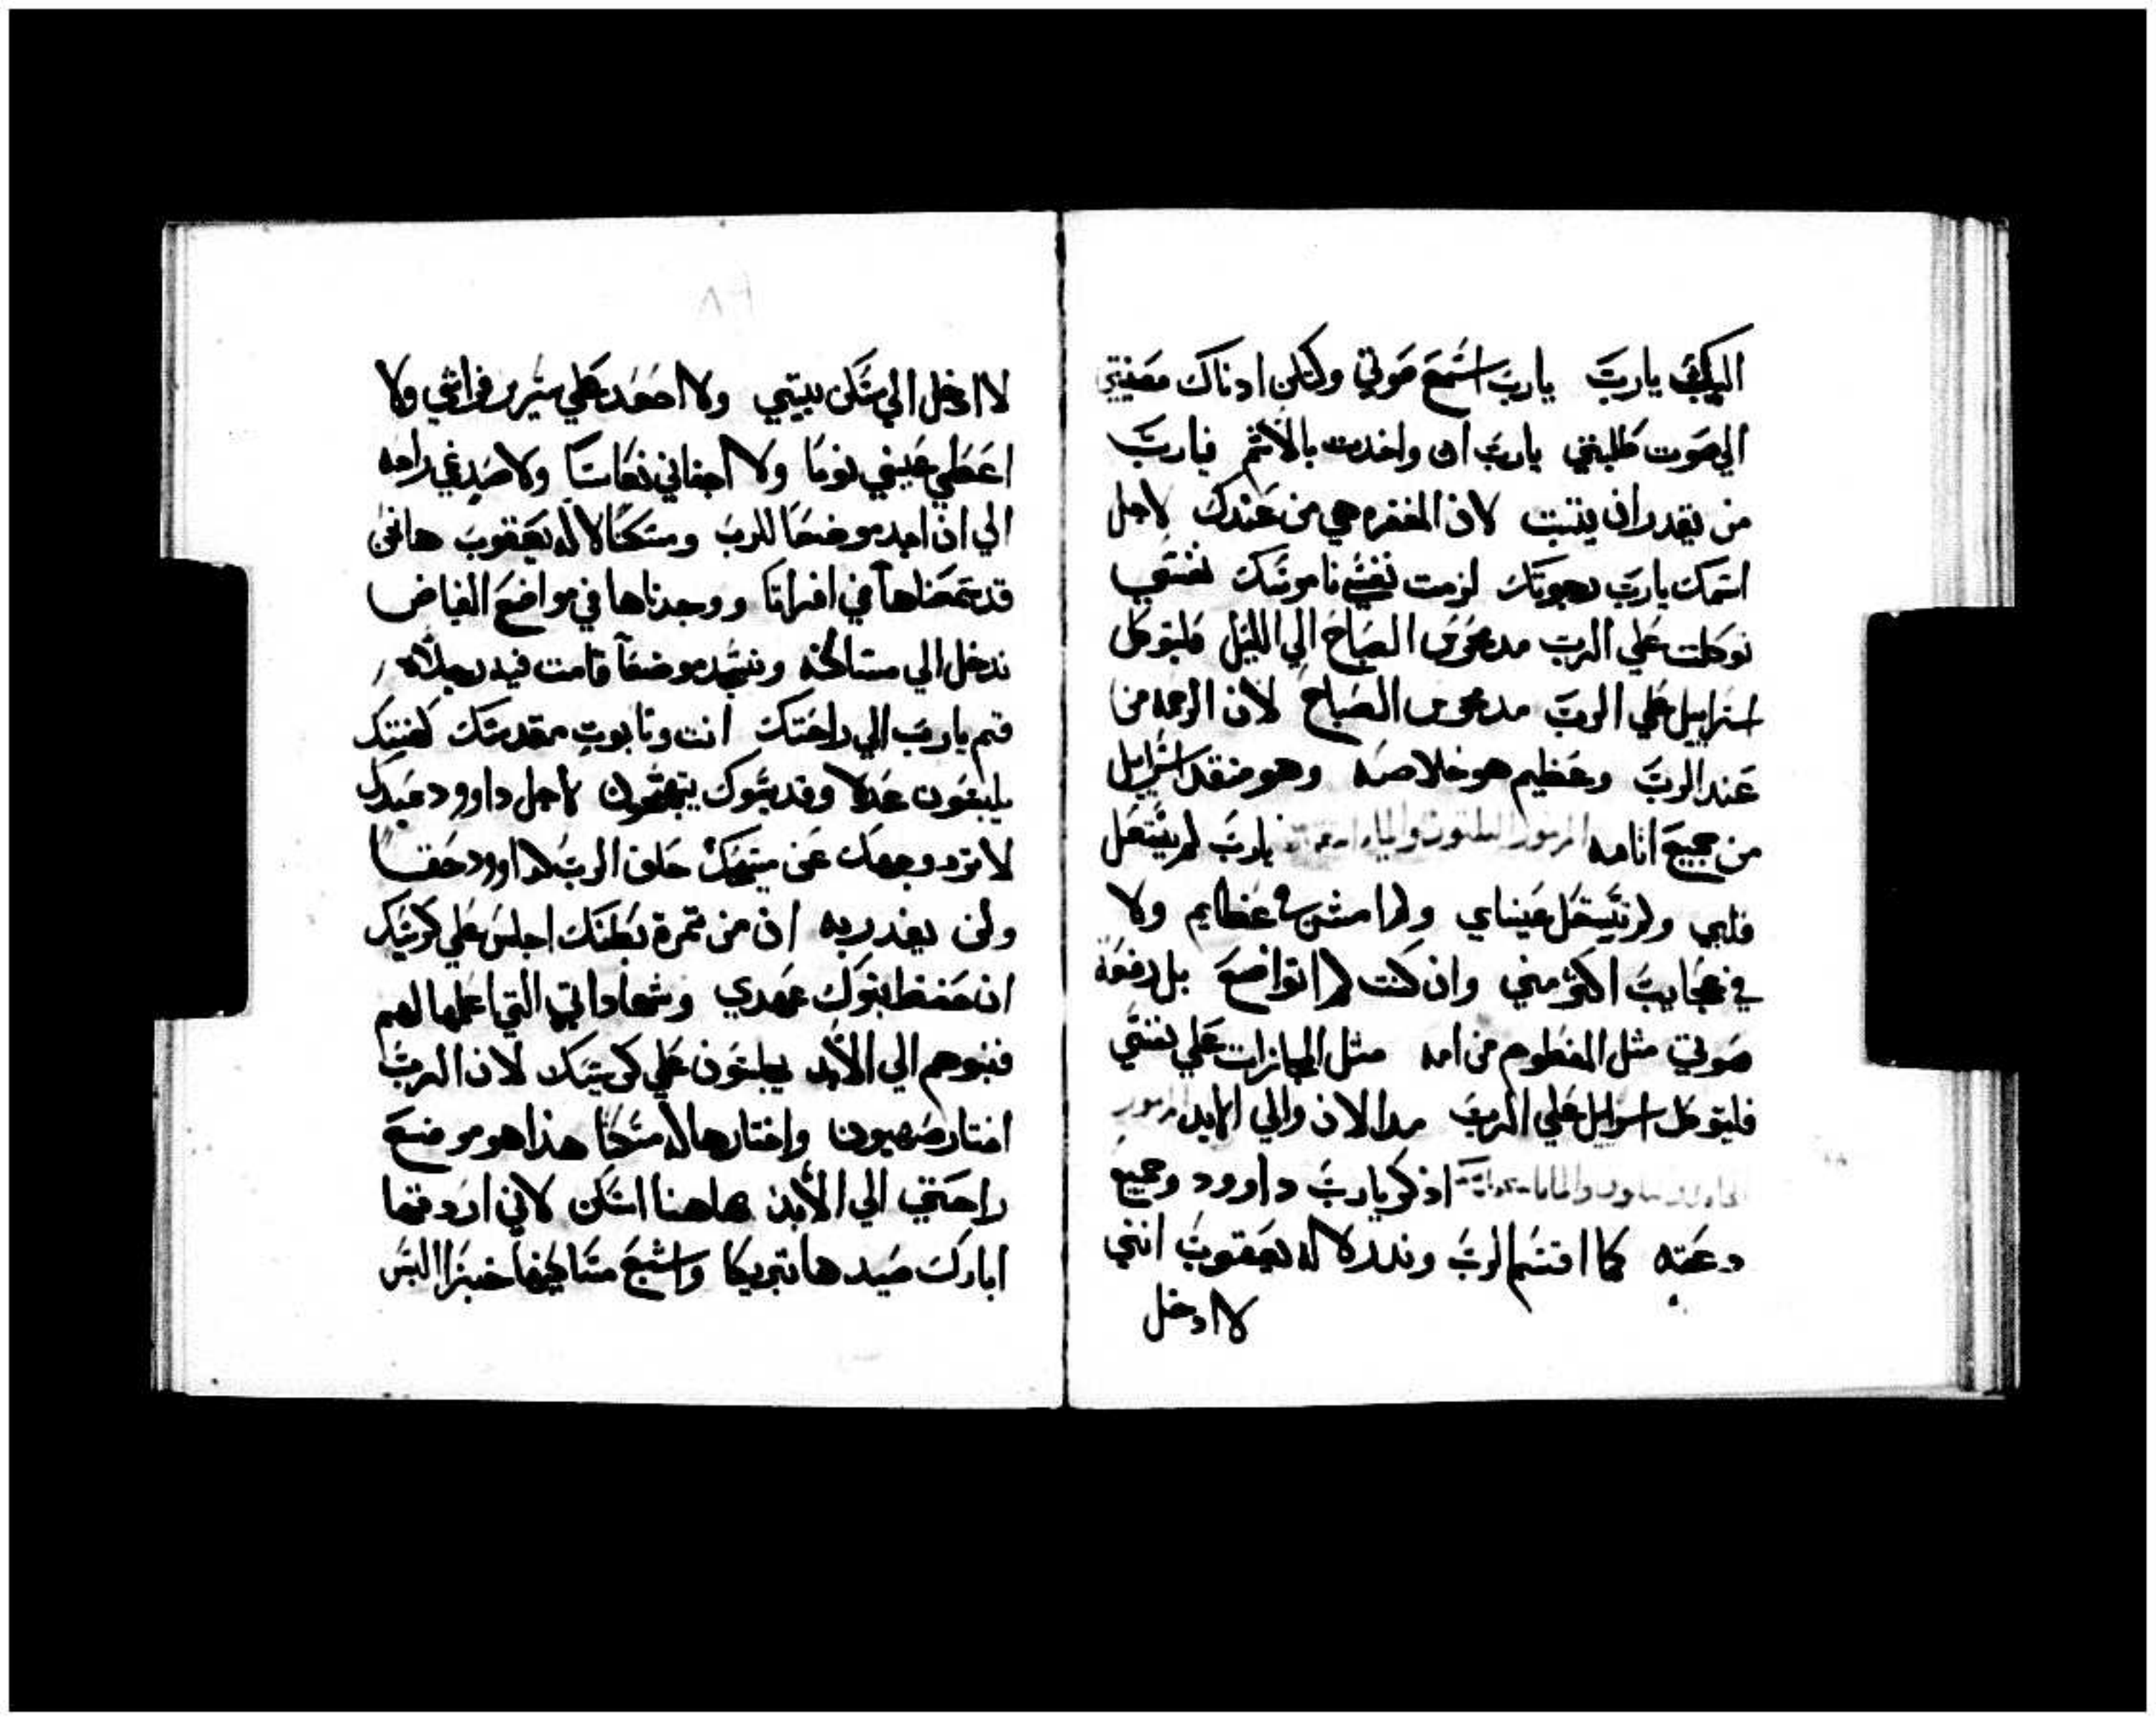 اليك يارب يارب اسمع صوتي ولتكن ادناك مصغيتين
الي صوت طلبتي يارب ان واخدت بالأثم فيارب
من يقدر ان يتبت لان المغفره هي من عندك لاجل
اسمك يارب رجوتك لزمت نفسي ناموسك نفسي
توكلت علي الرب من محرس الصباح الي الليل فليتوكل
اسراييل علي الرب من محرس الصباح لان الرحمه من
عند الرب وعظيم هو خلاصه وهو منقد اسراييل
من جميع اتامه المزمور التلتون والمايه يارب لم يستعل
قلبي ولم تستعل عيناي ولم امشي في عظايم ولا
في عجايب اكثر مني وان كنت لم اتواضع بل رفعة
صوتي مثل المفطوم من امه مثل المجازات علي نفسي
فليتوكل اسراييل علي الرب من الان والي الابد المزمور
اذكر يارب داوود وجميع
دعته كما اقسم للرب وندر لاله يعقوب انني
لا ادخل
٣٨
لا ادخل الي مسكن بيتي ولا اصعد علي سرير فراشي ولا
اعطي عيني نوما ولا اجفاني نعاسا ولا صدغي راحه
الي ان اجد موضعا للرب ومسكنا لاله يعقوب ها نحن
قد سمعناها في افراتا ووجدناها في مواضع الغياض
ندخل الي مساكنه ونسجد موضعا قامت فيه رجلاه
قم يارب الي راحتك انت وتابوت مقدسك كهنتك
يلبسون عدلا وقديسوك يبتهجون لاجل داوود عبدك
لا ترد وجهك عن مسيحك حلف الرب لداوود حقا
ولن يغدر به ان من تمرة بطنك اجلس علي كرسيك
ان حفظ بنوك عهدي وشهاداتي التي اعلمها لهم
فبنوهم الي الأبد يجلسون علي كرسيك لان الرب
اختار صهيون واختارها له مسكنا هذا هو موضع
راحتي الي الأبد هاهنا اسكن لاني اردتها
ابارك صيدها تبريكا واشبع مساكينها خبزا البس